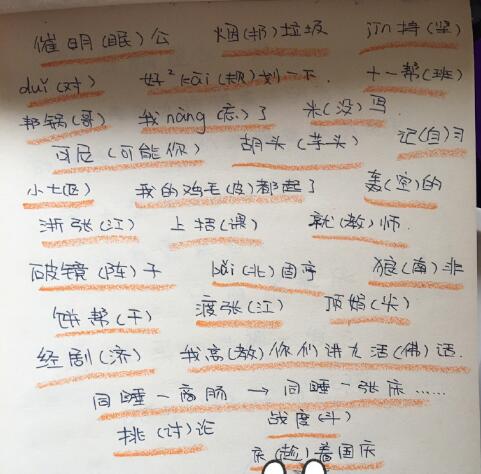 催明(眠)公 烟(扔)垃圾 jīn持(坚)
duǐ(对) 好²kāi(规)划一下. 十一帮(班)
帮锅(哥) 我nàng(忘)了 米(没)写
可尼(可能你) 胡头(芋头) 记(自)习
小七(区) 我的鸡毛(皮)都起了 轰(空)的
浙张(江) 上括(课) 就(教)师.
破镜(阵)子 bǎi(北)固亭 狼(南)非
饼帮(干) 渡张(江) 顶始(尖)
经剧(济) 我高(教)你们讲大活(佛)话.
同睡一商肠 → 同睡一张床……
挑(讨)论 战度(斗)
庆(趁)着国庆